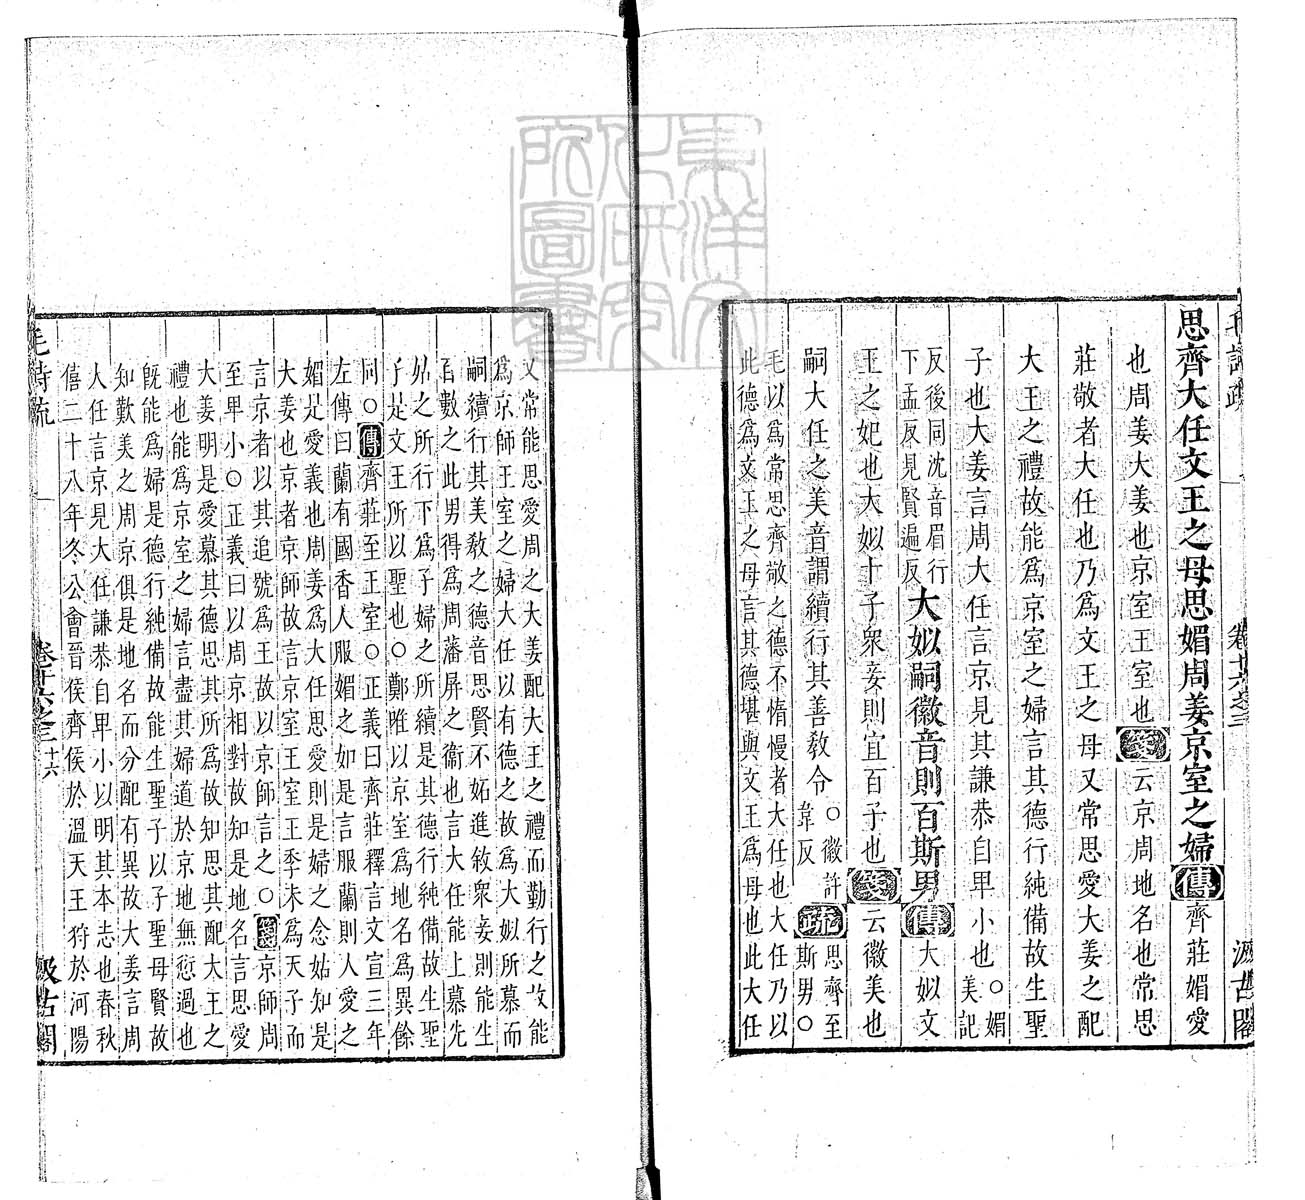 毛詩疏 卷十六之三 汲古閣
思齊大任文王之母思媚周姜京室之婦傳齊莊媚愛
也周姜大姜也京室王室也箋云京周地名也常思
莊敬者大任也乃爲文王之母又常思愛大姜之配
大王之禮故能爲京室之婦言其德行純備故生聖
子也大姜言周大任言京見其謙恭自卑小也○媚美記
反後同沈音眉行
下孟反見賢遍反大姒嗣徽音則百斯男傳大姒文
王之妃也大姒十子衆妾則宜百子也箋云徽美也
嗣大任之美音謂續行其善教令○徽許韋反疏思齊至斯男○
毛以爲常思齊敬之德不惰慢者大任也大任乃以
此德爲文王之母言其德堪與文王爲母也此大任
又常能思愛周之大姜配大王之禮而勤行之故能
爲京師王室之婦大任以有德之故爲大姒所慕而
嗣續行其美教之德音思賢不妬進敘衆妾則能生
百數之此男得爲周藩屏之衞也言大任能上慕先
姑之所行下爲子婦之所續是其德行純備故生聖
子是文王所以聖也○鄭唯以京室爲地名爲異餘
同○傳齊莊至王室○正義曰齊莊釋言文宣三年
左傳曰蘭有國香人服媚之如是言服蘭則人愛之
媚是愛義也周姜爲大任思愛則是婦之念姑知是
大姜也京者京師故言京室王室王季未爲天子而
言京者以其追號爲王故以京師言之○箋京師周
至卑小○正義曰以周京相對故知是地名言思愛
大姜明是愛慕其德思其所爲故知思其配大王之
禮也能爲京室之婦言盡其婦道於京地無愆過也
旣能爲婦是德行純備故能生聖子以子聖母賢故
知歎美之周京俱是地名而分配有異故大姜言周
大任言京見大任謙恭自卑小以明其本志也春秋
僖二十八年冬公會晉侯齊侯於溫天王狩於河陽
毛詩疏 卷十六之三 十六 汲古閣